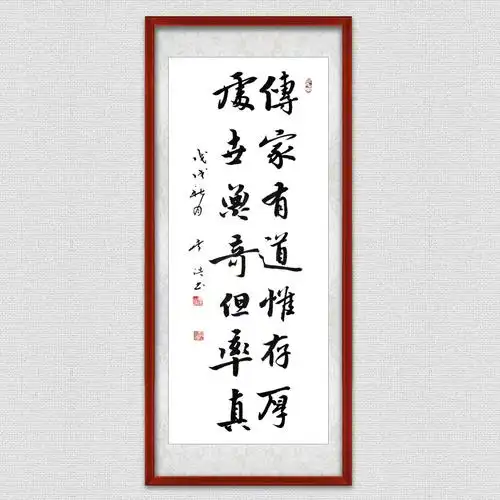 傳家有道惟存厚
處世無奇但率真
戊戌秋月